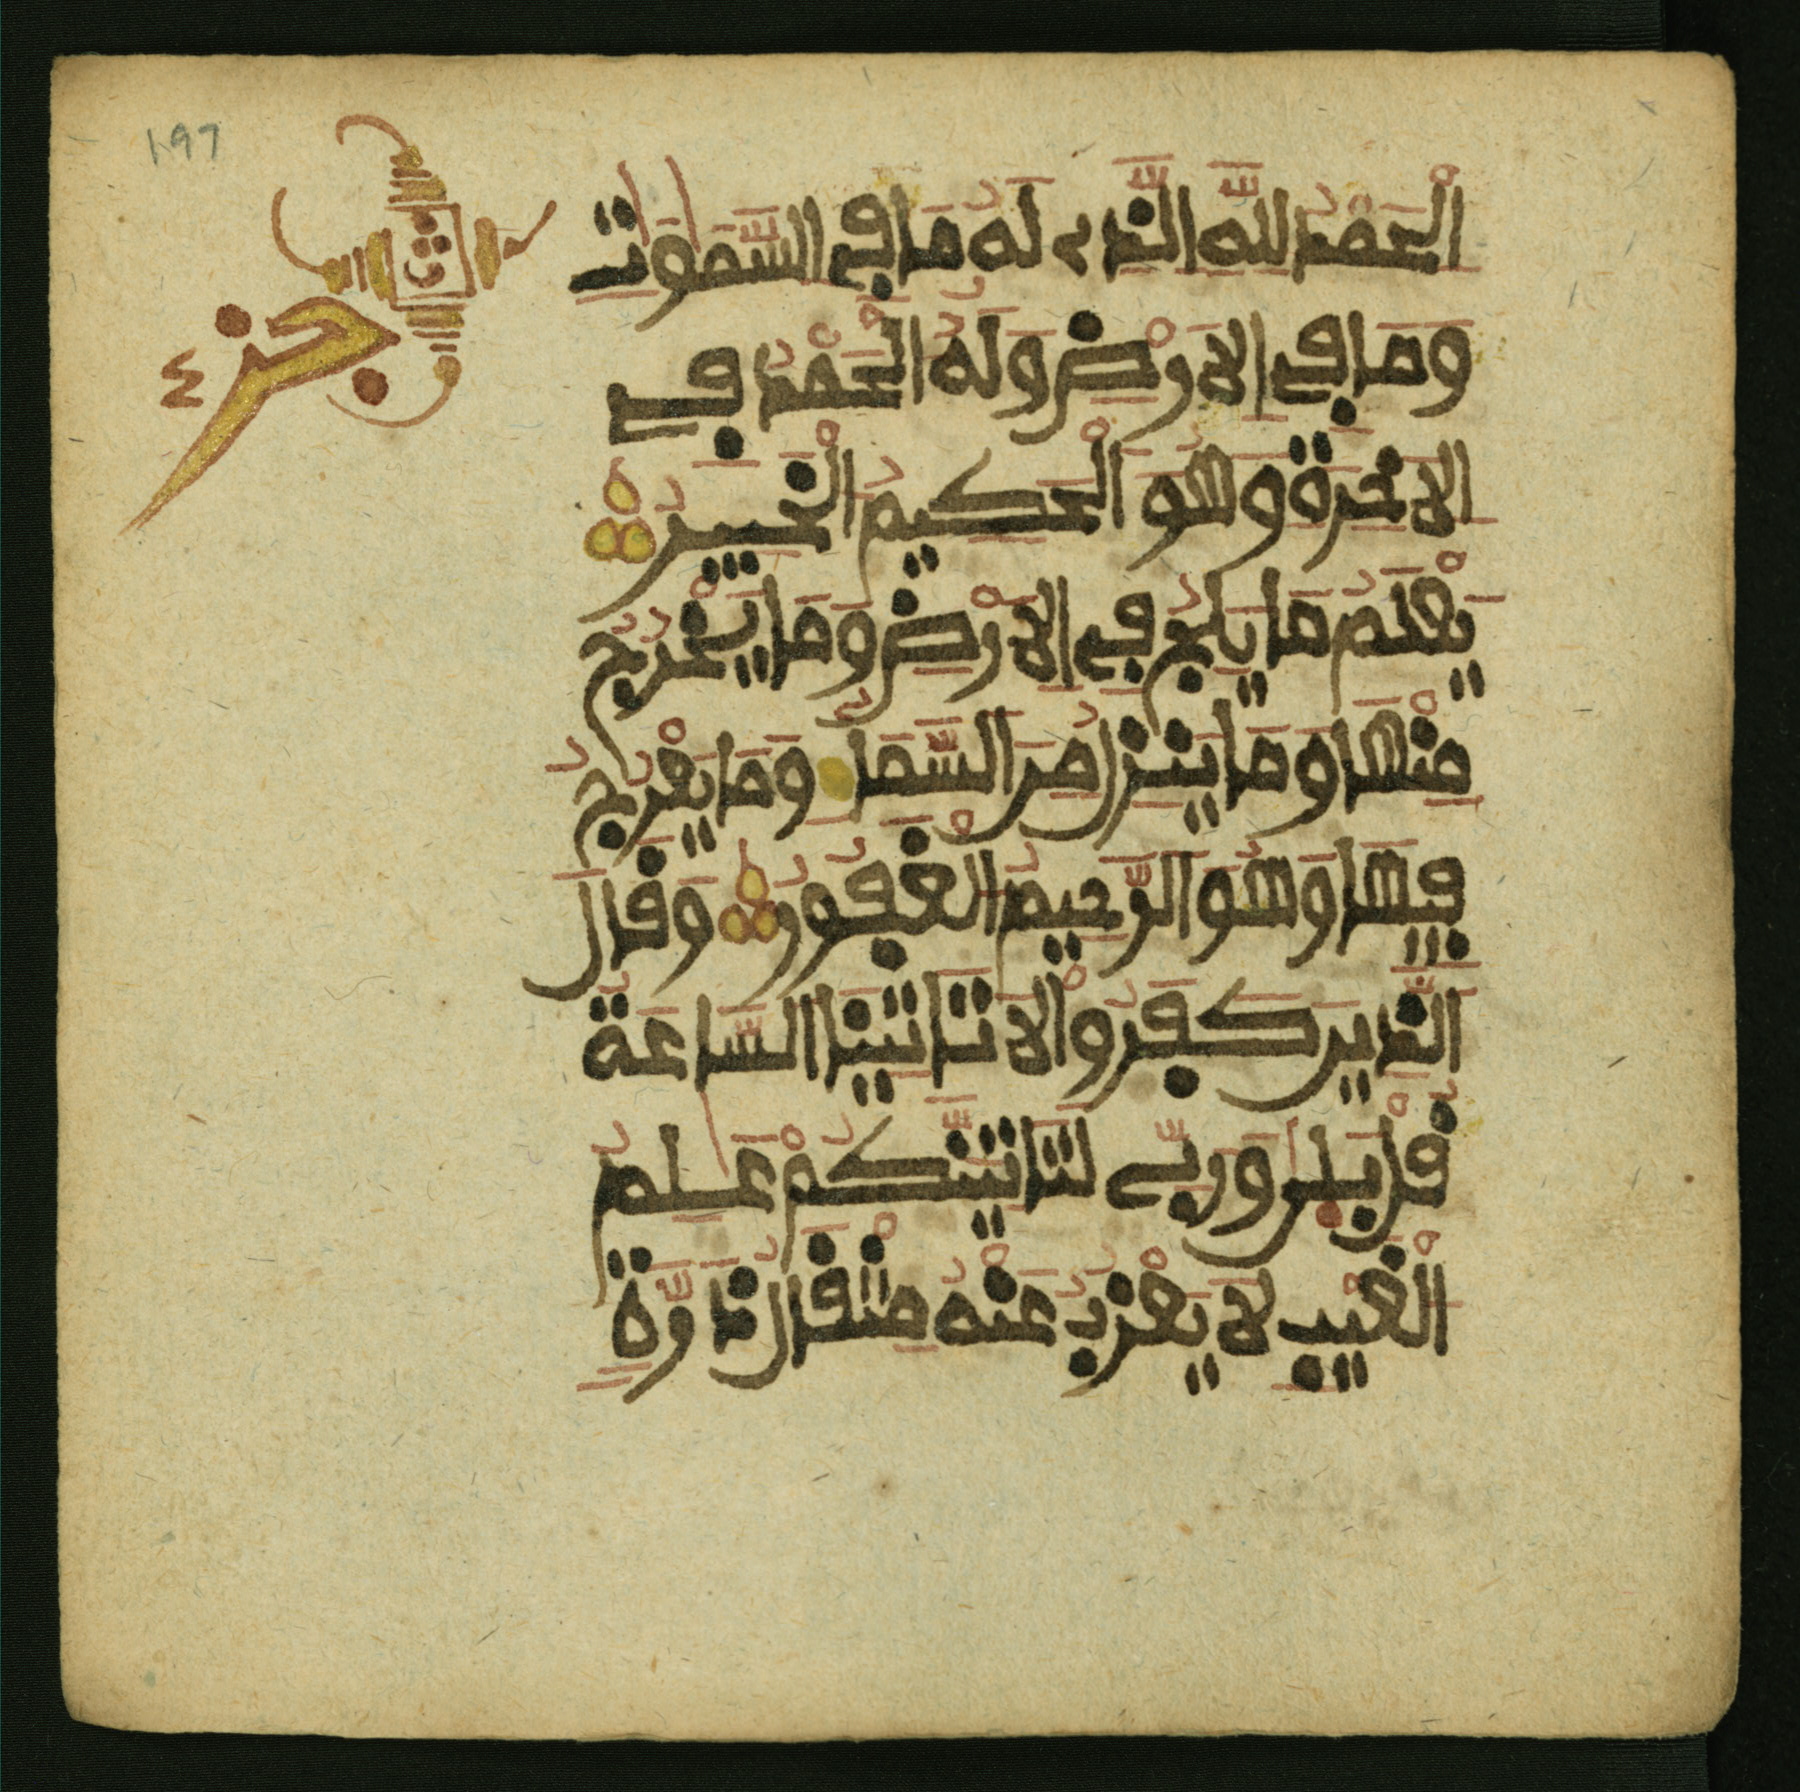 ١٩٦
حزب
اَلْحَمْدُ لِلَّهِ الَّذِے لَهُ مَا فِے السَّمَٰوَٰتِ
وَمَا فِے اِلَارْضِ وَلَهُ الْحَمْدُ فِے
اِلَاخِرَةِ وَهُوَ الْحَكِيمُ الْخَبِيرُ
يَعْلَمُ مَا يَلِجُ فِے اِلَارْضِ وَمَا يَخْرُجُ
مِنْهَا وَمَا يَنزِلُ مِنَ السَّمَاءِ وَمَا يَعْرُجُ
فِيهَا وَهُوَ الرَّحِيمُ الْغَفُورُ وَقَالَ
الَّذِينَ كَفَرُواْ لَا تَاتِينَا السَّاعَةُ
قُلْ بَلَىٰ وَرَبِّے لَتَاتِيَنَّكُمْ عَٰلِمُ
الْغَيْبِ لَا يَعْزُبُ عَنْهُ مِثْقَالُ ذَرَّةٍ